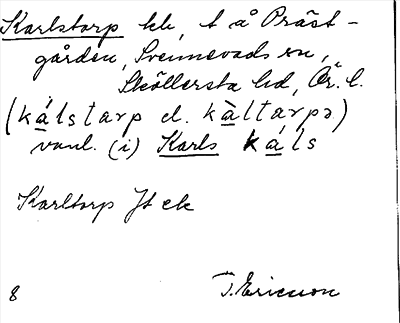 Karlstorp kh, t å Präst-
gården, Svennevads sn,
Sköllersta hd, Ör. l.
(kálstarp el. kàltarpə)
vanl. (i) Karls káls
Karltorp Jt ek
8 T. Ericsson